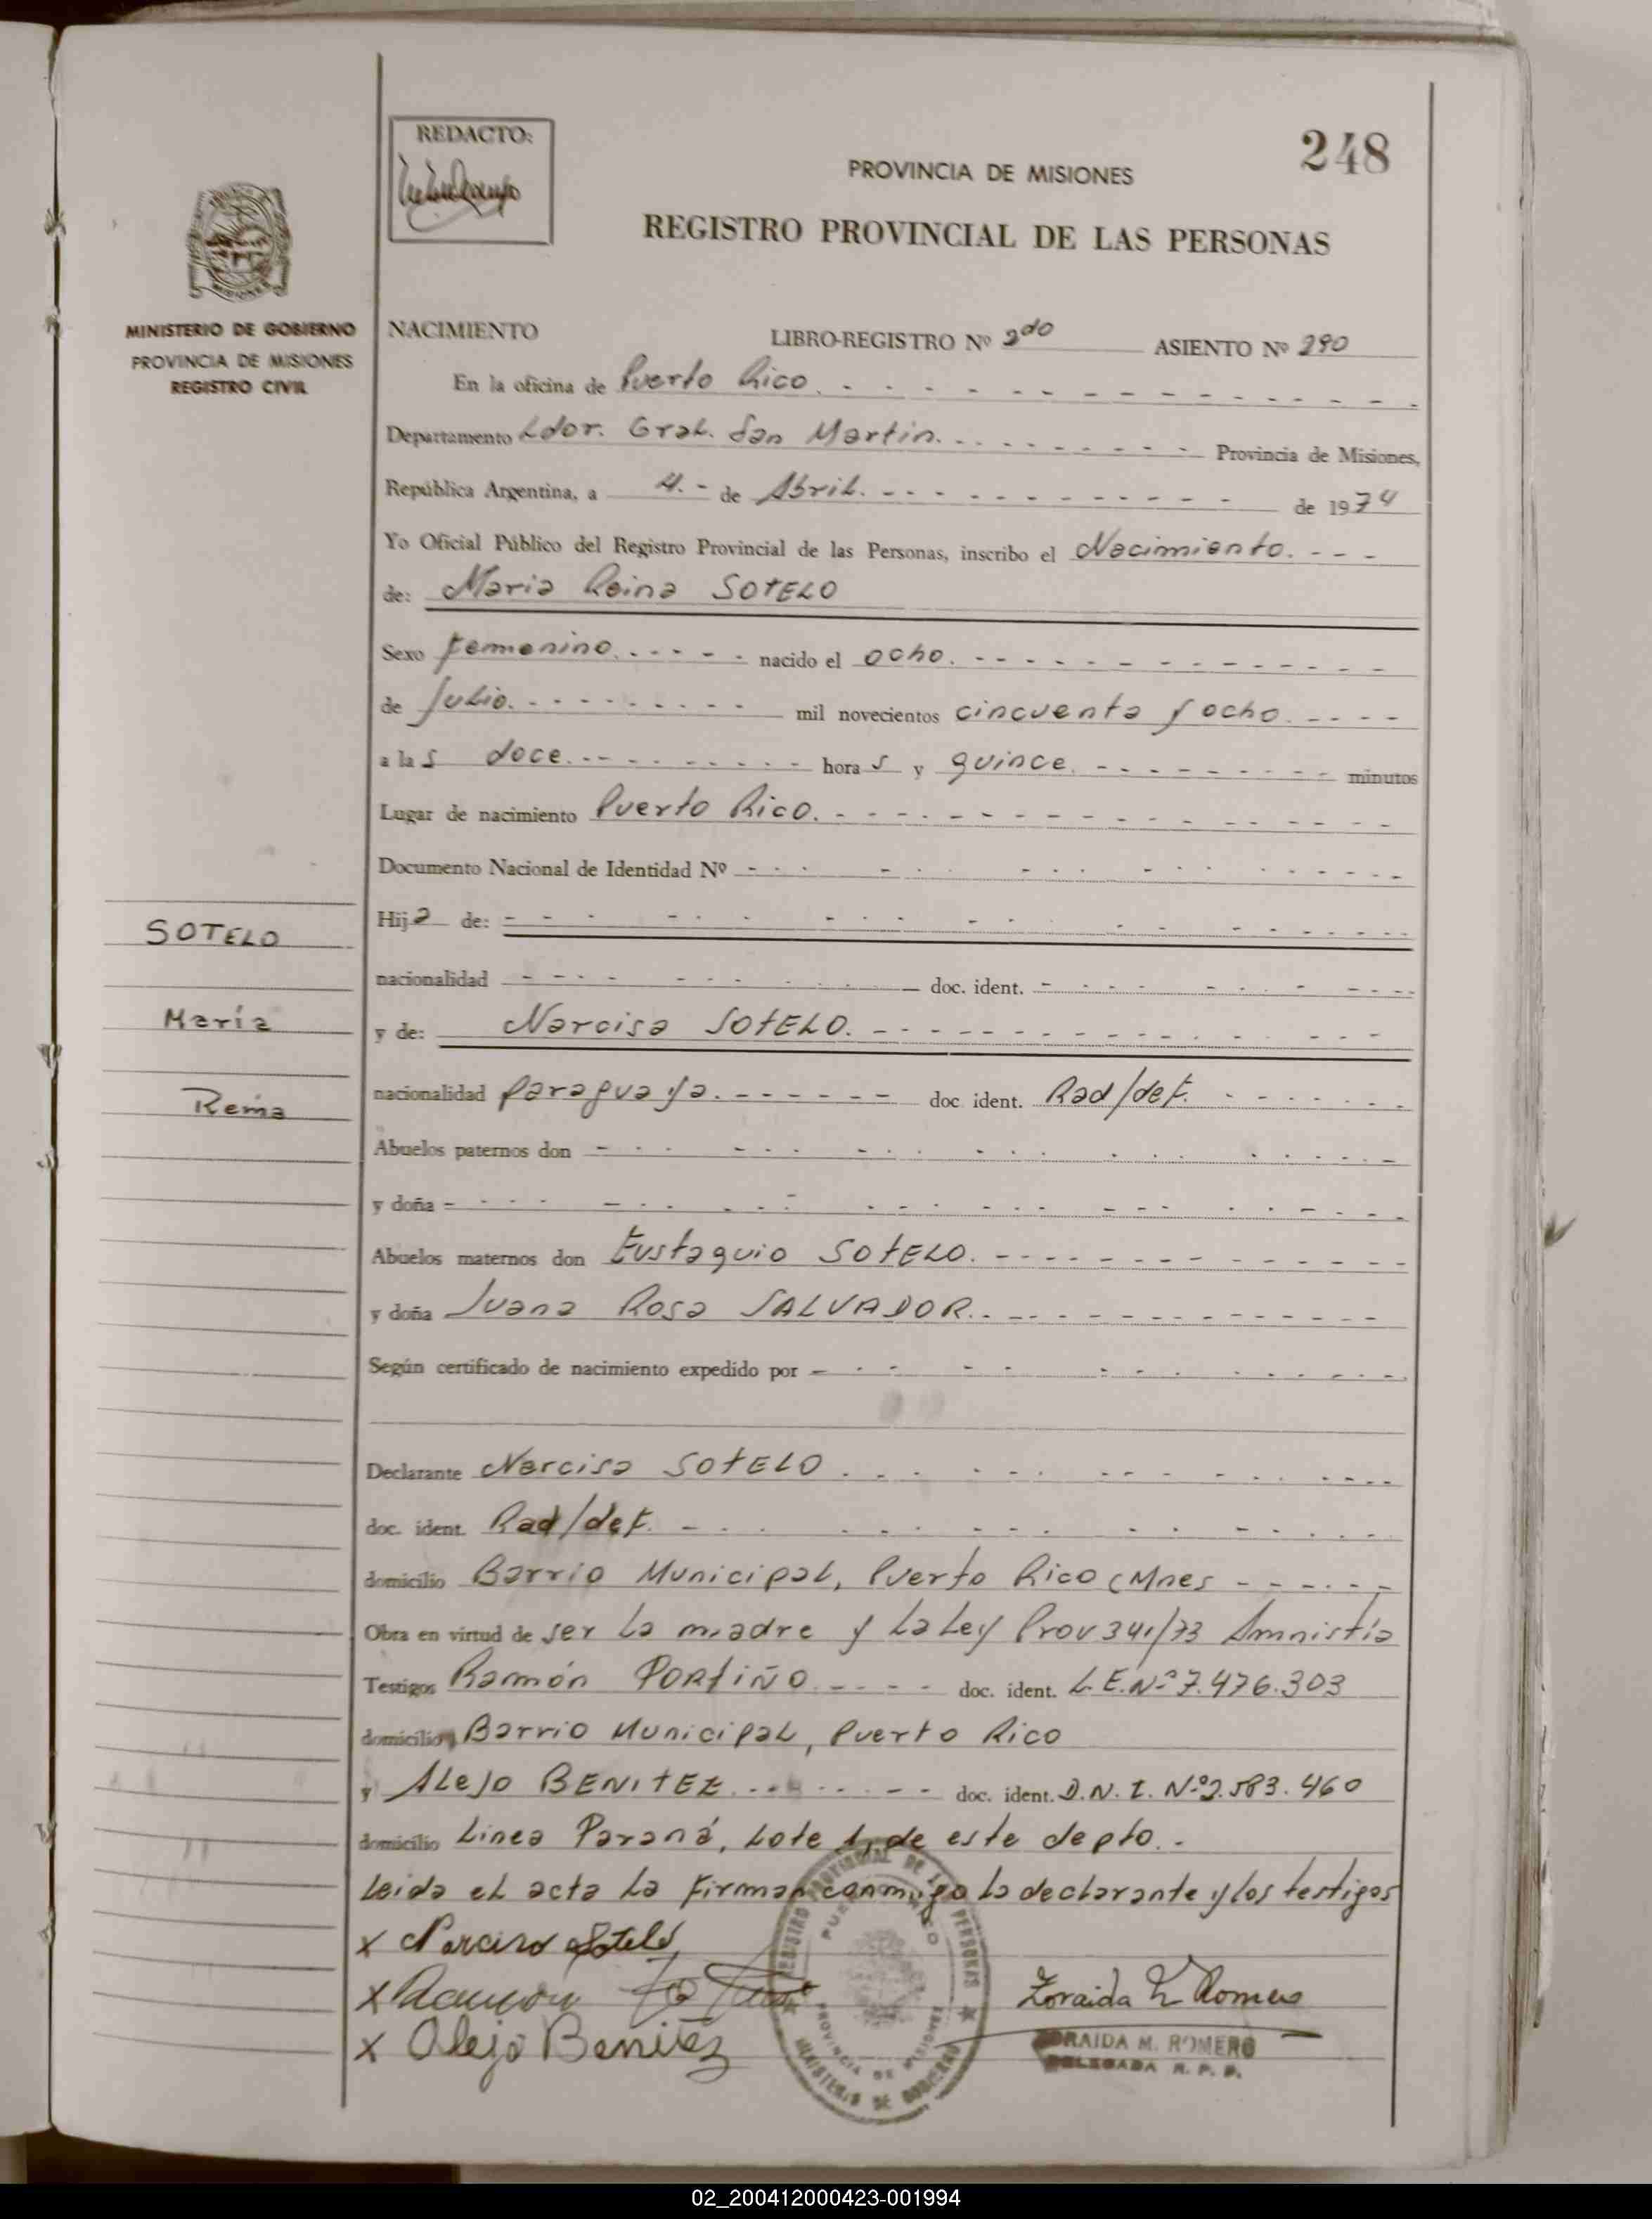 REDACTO:
248
PROVINCIA DE MISIONES
REGISTRO PROVINCIAL DE LAS PERSONAS
MISIONES
MINISTERIO DE GOBIERNO
PROVINCIA DE MISIONES
REGISTRO CIVIL
NACIMIENTO LIBRO-REGISTRO Nº 2do ASIENTO Nº 290
En la oficina de Puerto Rico.
Departamento Ldor. Gral. San Martin. Provincia de Misiones,
República Argentina, a 4.- de Abril. de 1974
Yo Oficial Público del Registro Provincial de las Personas, inscribo el Nacimiento.
de: Maria Reina SOTELO
Sexo femenino. nacido el ocho.
de Julio. mil novecientos cincuenta y ocho.
a las doce. horas y quince. minutos
Lugar de nacimiento Puerto Rico.
Documento Nacional de Identidad Nº
Hija de:
SOTELO
nacionalidad doc. ident.
María
y de: Narcisa SOTELO.
Reina
nacionalidad paraguaya. doc. ident. Rad/def.
Abuelos paternos don
y doña
Abuelos maternos don Eustaquio SOTELO.
y doña Juana Rosa SALVADOR.
Según certificado de nacimiento expedido por
Declarante Narcisa SOTELO
doc. ident. Rad/def.
domicilio Barrio Municipal, Puerto Rico (Mnes
Obra en virtud de ser la madre y La Ley Prov 341/73 Amnistía
Testigos Ramón PORTIÑO doc. ident. L.E.Nº 7.476.303
domicilio Barrio Municipal, Puerto Rico
y ALEJO BENITEZ doc. ident. D.N.I. Nº 2.583.460
domicilio Linea Paraná, Lote 1, de este depto.-
Leida el acta la firman conmigo la declarante y los testigos
x Narcisa Sotelo
x Ramon
x Alejo Benitez
Zoraida M Romero
ZORAIDA M. ROMERO
DELEGADA R. P. P.
REGISTRO PROVINCIAL DE LAS PERSONAS
PUERTO RICO
PROVINCIA DE MISIONES
MINISTERIO DE GOBIERNO
02_200412000423-001994